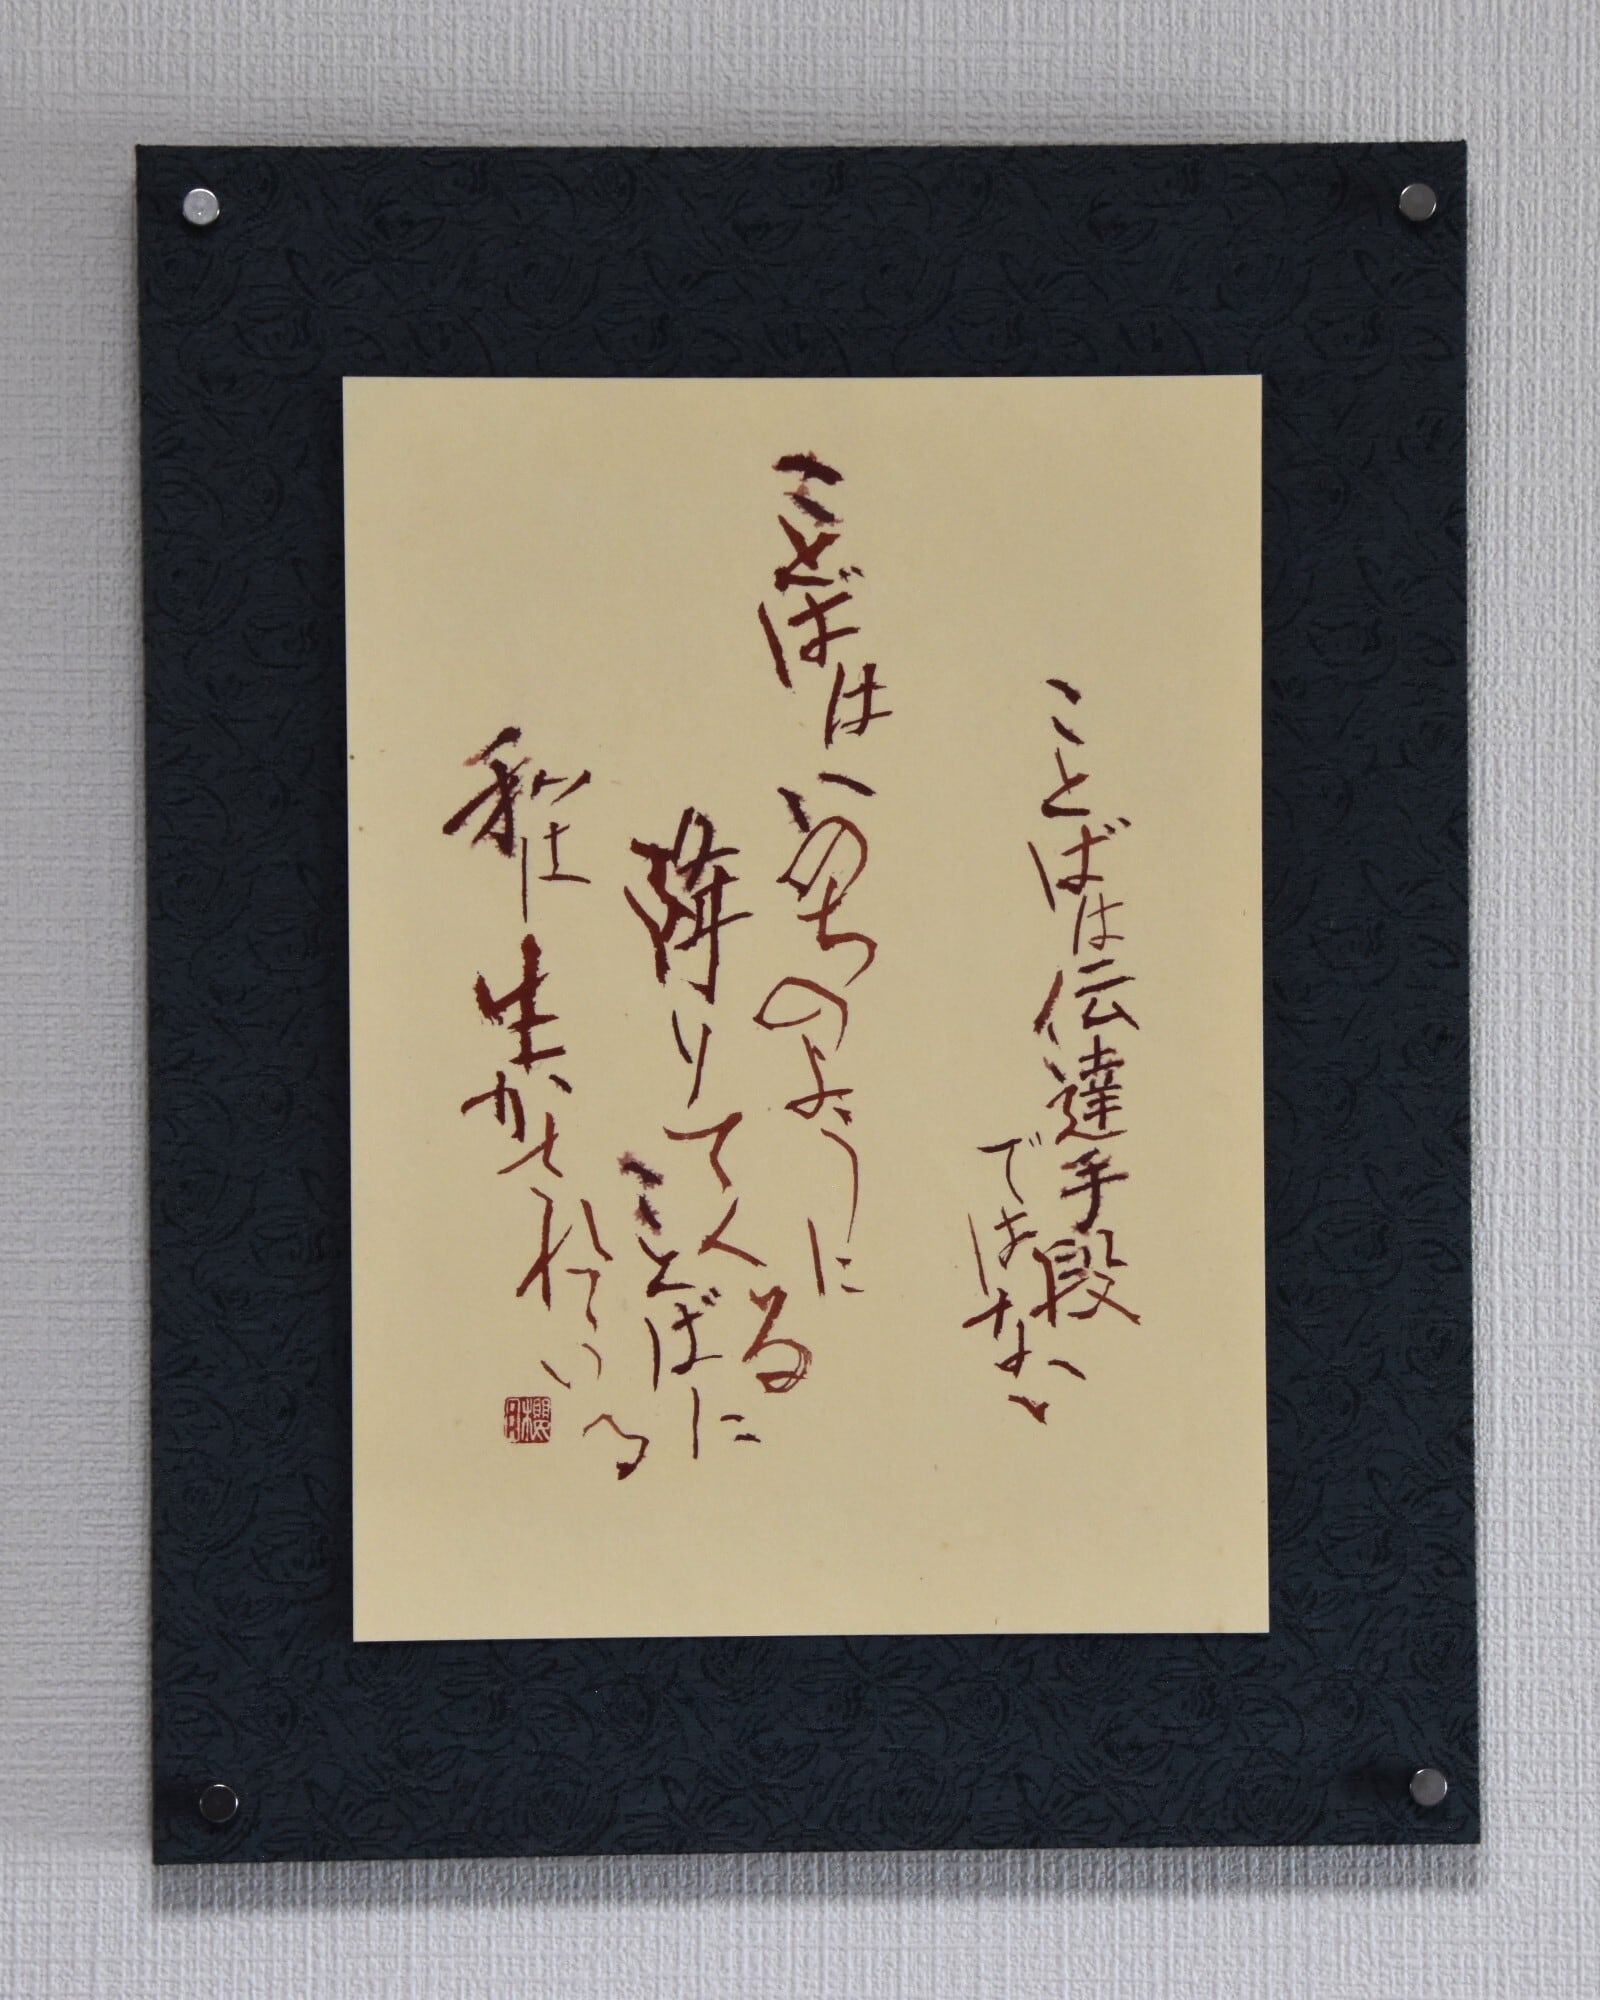 ことばは伝達手段
ではない
ことばは
いのちのように
降りてくる
ことばに
私は
生かされている